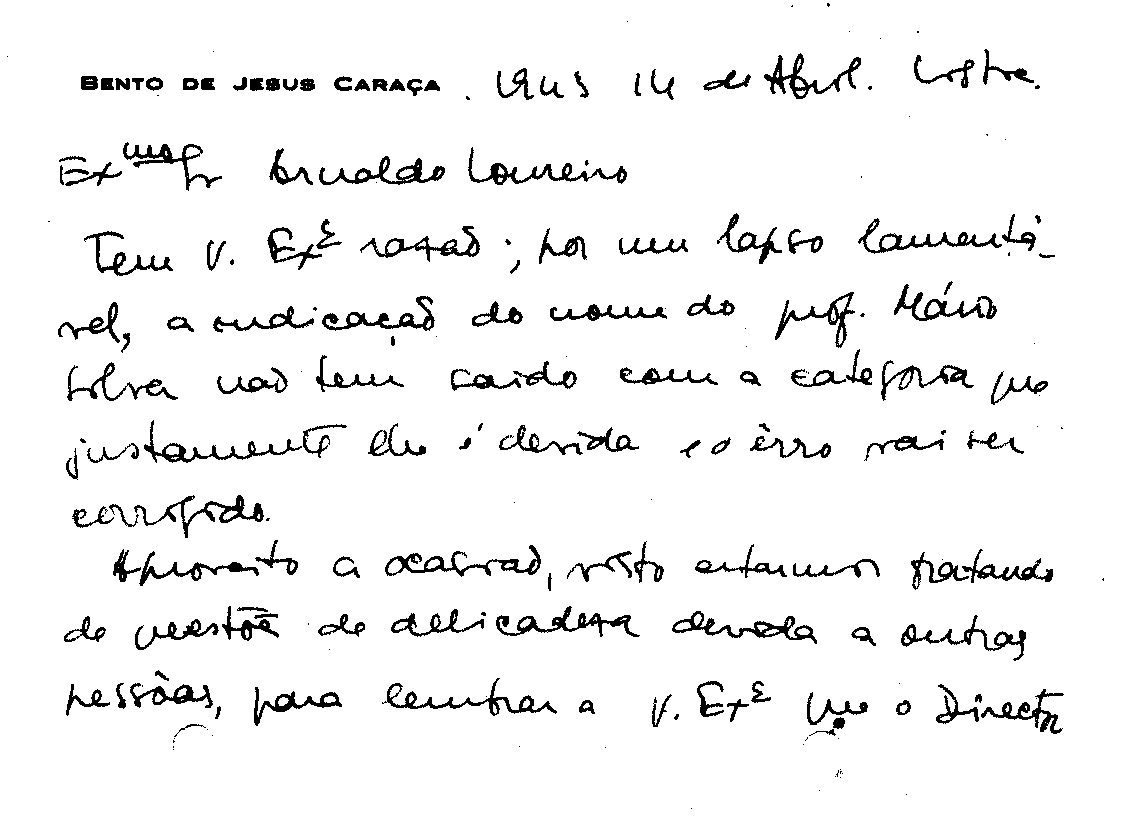 BENTO DE JESUS CARAÇA. 1943 14 de Abril. Lisboa.
Exmo Sr Arnaldo Loureiro
Tem V. Exª razão; por um lapso lamentá-
vel, a indicação do nome do prof. Mário
Silva não tem saído com a categoria que
justamente lhe é devida e o êrro vai ser
corrigido.
Aproveito a ocasião, visto estarmos tratando
de questões de delicadeza devida a outras
pessôas, para lembrar a V. Exª que o Director